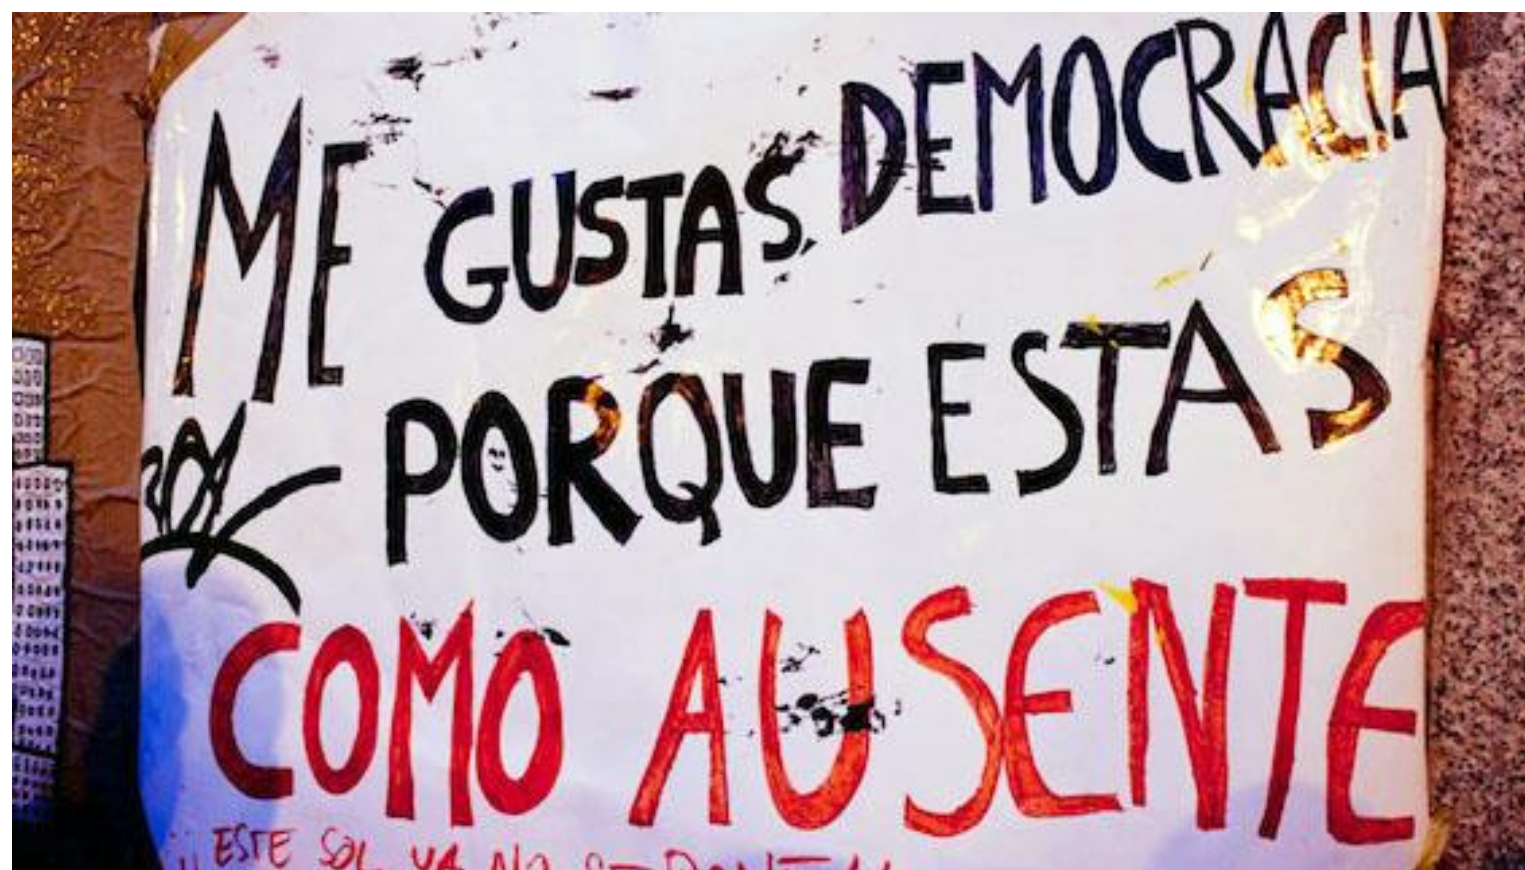 ME GUSTAS, DEMOCRACIA
PORQUE ESTÁS
COMO AUSENTE
SOL
¡¡ ESTE SOL YA NO SE PONE!!